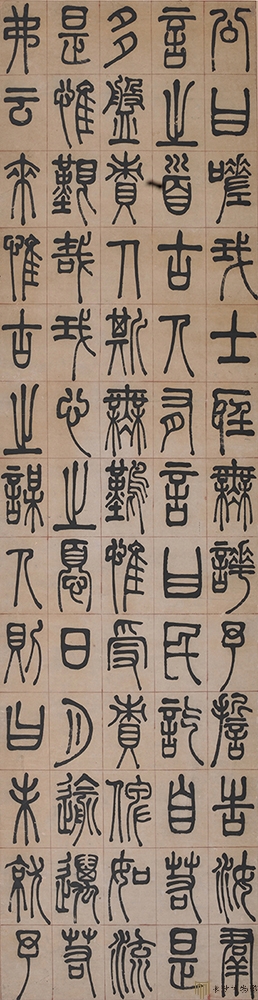 公曰嗟我士聽無譁予誓告汝羣
言之首古人有言曰民訖自若是
多盤責人斯無難惟受責俾如流
是惟艱哉我心之憂日月逾邁若
弗云來惟古之謀人則曰未就予